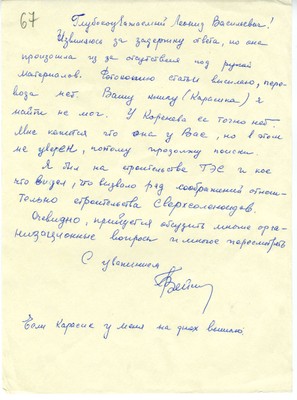 67
Глубокоуважаемый Леонид Васильевич!
Извиняюсь за задержку ответа, но она
произошла из за отсутствия под рукой
материалов. Фотокопию статьи высылаю, пере-
вода нет. Вашу книгу (Карасика) я
найти не мог. У Коренева ее точно нет.
Мне кажется что она у Вас, но в этом
не уверен, потому продолжу поиски.
Я был на строительстве ТЭС и кое
что видел, что вызвало ряд соображений относи-
тельно строительства Сверхсоленоидов.
Очевидно, прийдется обсудить много орга-
низационные вопросы и многое пересмотреть
С уважением
Если Карасик у меня на днях вышлю